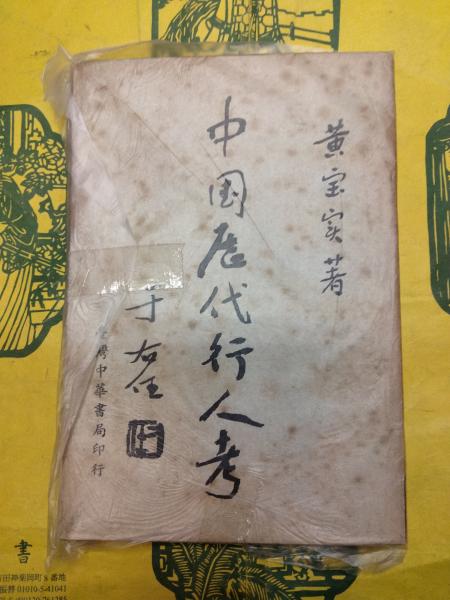 黄宝实著
中国歷代行人考
于右任
臺灣中華書局印行
書
田神楽岡町8番地
振替 01010-5-41041